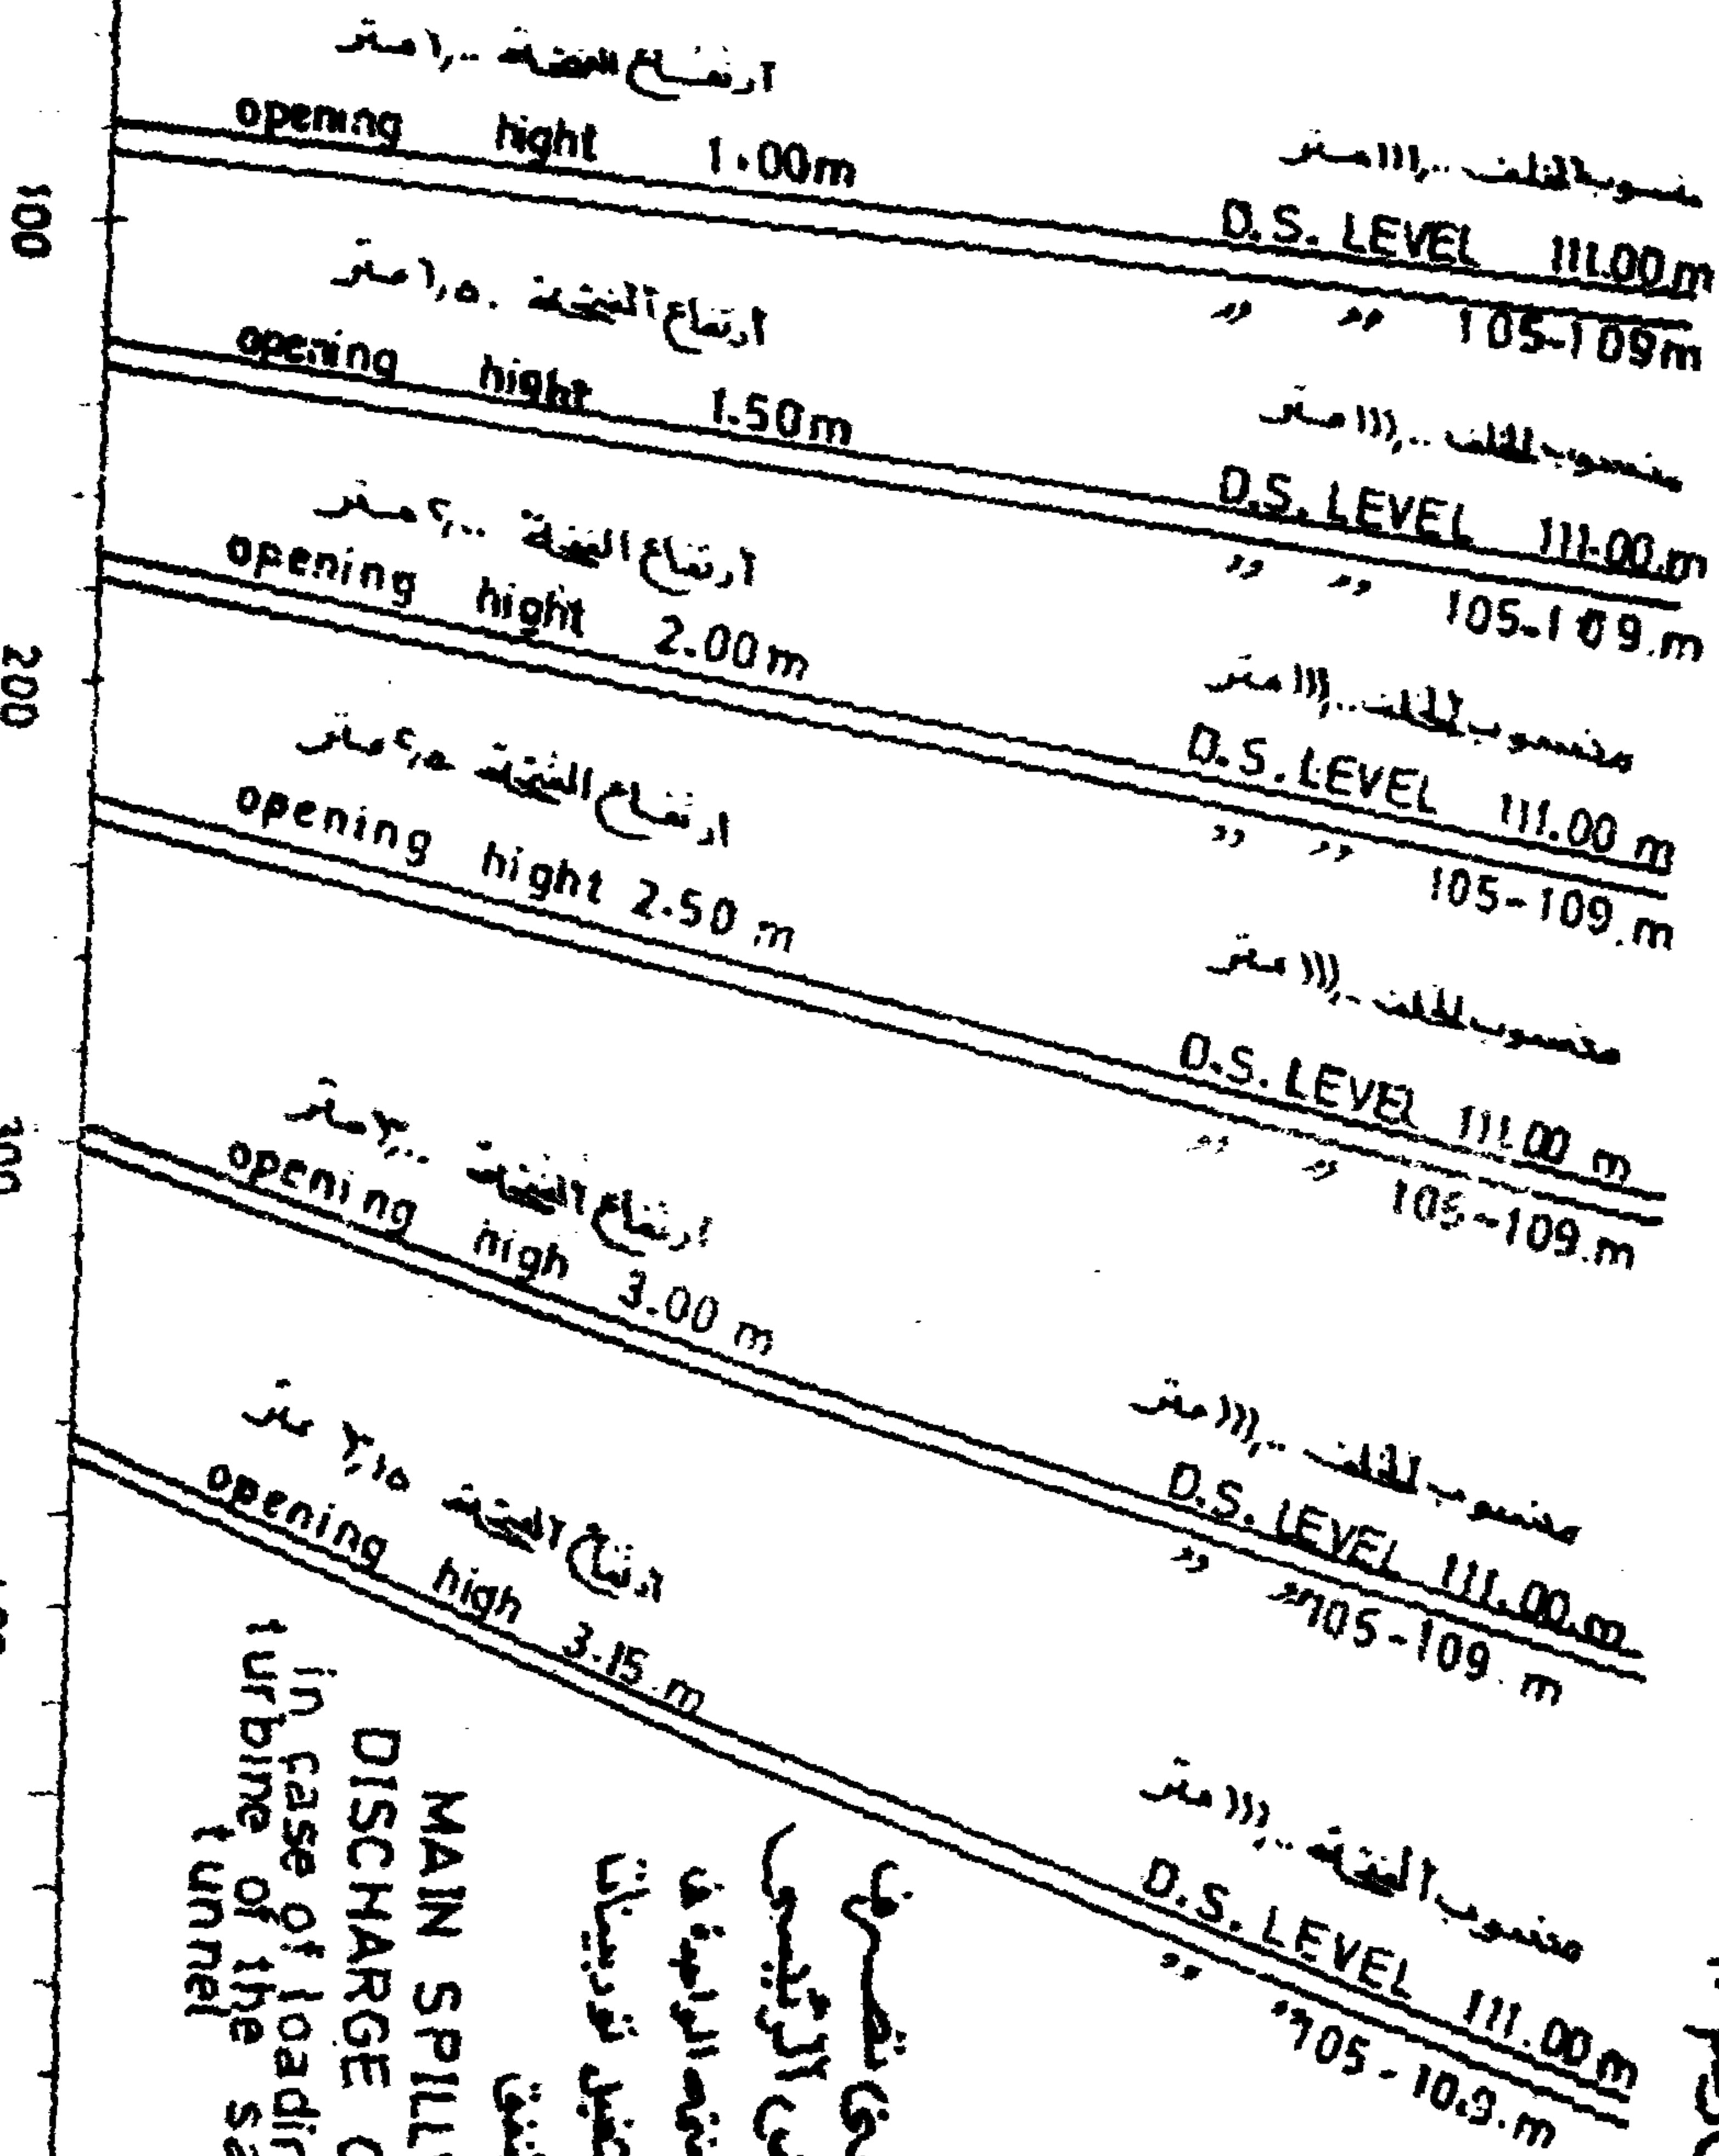 ارتفاع الفتحة ١٫٠٠ متر
opening hight 1.00m
منسوب الخلف ١١١٫٠٠ متر
D.S. LEVEL 111.00m
" " 105-109m
100
ارتفاع الفتحة ١٫٥٠ متر
opening hight 1.50m
منسوب الخلف ١١١٫٠٠ متر
D.S. LEVEL 111.00.m
" " 105-109.m
ارتفاع الفتحة ٢٫٠٠ متر
opening hight 2.00m
منسوب الخلف ١١١٫٠٠ متر
D.S. LEVEL 111.00 m
" " 105-109.m
200
ارتفاع الفتحة ٢٫٥٠ متر
opening hight 2.50 m
منسوب الخلف ١١١٫٠٠ متر
D.S. LEVEL 111.00 m
" " 105-109.m
ارتفاع الفتحة ٣٫٠٠ متر
opening high 3.00 m
منسوب الخلف ١١١٫٠٠ متر
D.S. LEVEL 111.00.m
" " 105-109.m
ارتفاع الفتحة ٣٫١٥ متر
opening high 3.15.m
منسوب الفتحة ١١١٫٠٠ متر
D.S. LEVEL 111.00m
" " 105-109.m
MAIN SPILL
DISCHARGE
in case of loadin
turbine of the sa
tunnel